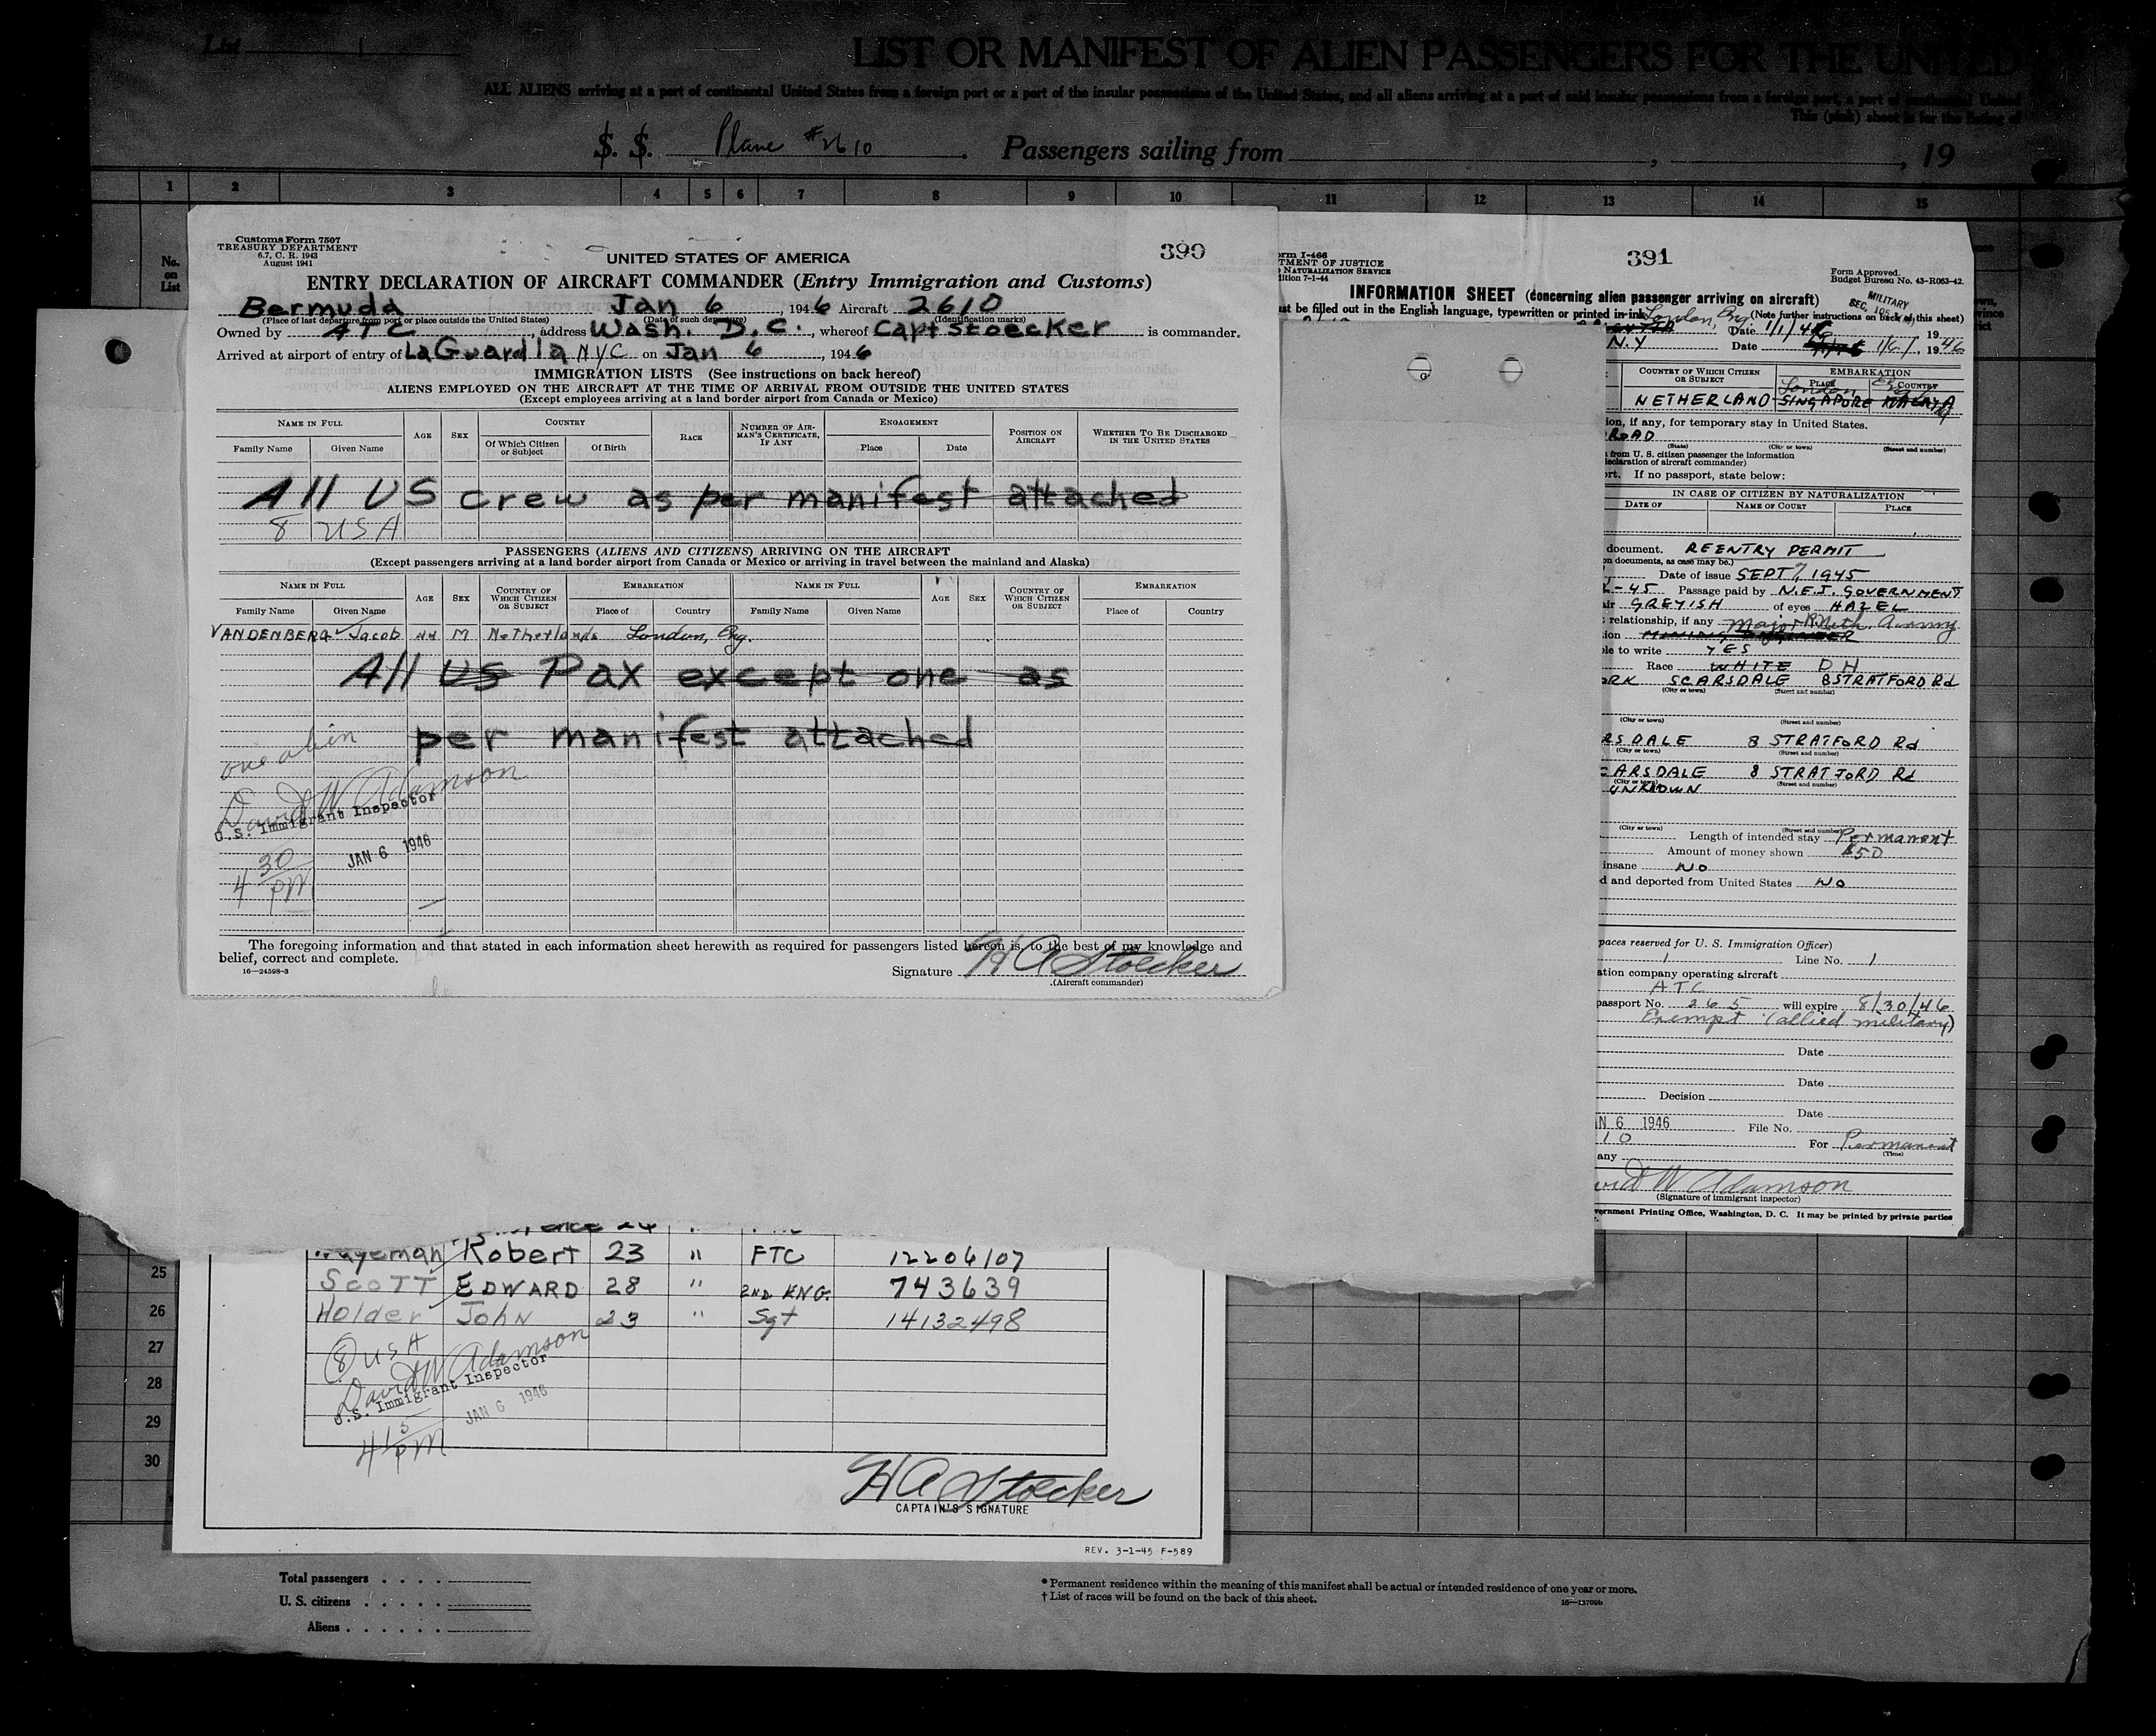 List 1
LIST OR MANIFEST OF ALIEN PASSENGERS FOR THE UNITED
ALL ALIENS arriving at a port of continental United States from a foreign port or a port of the insular possessions of the United States, and all aliens arriving at a port of said insular possessions from a foreign port, a port of continental United
This (pink) sheet is for the listing of
S. S. Plane #2610. Passengers sailing from , , 19
1 2 3 4 5 6 7 8 9 10 11 12 13 14 15
No. on List
Customs Form 7507
TREASURY DEPARTMENT
6.7, C. R. 1943
August 1941
UNITED STATES OF AMERICA
390
ENTRY DECLARATION OF AIRCRAFT COMMANDER (Entry Immigration and Customs)
Bermuda Jan 6, 1946 Aircraft 2610
(Place of last departure from port or place outside the United States) (Date of such departure) (Identification marks)
Owned by ATC, address Wash. D.C., whereof Capt Stoecker is commander.
Arrived at airport of entry of LaGuardia NYC on Jan 6, 1946
IMMIGRATION LISTS (See instructions on back hereof)
ALIENS EMPLOYED ON THE AIRCRAFT AT THE TIME OF ARRIVAL FROM OUTSIDE THE UNITED STATES
(Except employees arriving at a land border airport from Canada or Mexico)
NAME IN FULL AGE SEX COUNTRY RACE NUMBER OF AIRMAN'S CERTIFICATE, IF ANY ENGAGEMENT POSITION ON AIRCRAFT WHETHER TO BE DISCHARGED IN THE UNITED STATES
Family Name Given Name Of Which Citizen or Subject Of Birth Place Date
All US crew as per manifest attached
8 USA
PASSENGERS (ALIENS AND CITIZENS) ARRIVING ON THE AIRCRAFT
(Except passengers arriving at a land border airport from Canada or Mexico or arriving in travel between the mainland and Alaska)
NAME IN FULL AGE SEX COUNTRY OF WHICH CITIZEN OR SUBJECT EMBARKATION NAME IN FULL AGE SEX COUNTRY OF WHICH CITIZEN OR SUBJECT EMBARKATION
Family Name Given Name Place of Country Family Name Given Name Place of Country
VANDENBERG Jacob 44 M Netherlands London, Eng.
All US Pax except one as
per manifest attached
one alien
David W Adamson
U.S. Immigrant Inspector
JAN 6 1946
4 30 PM
The foregoing information and that stated in each information sheet herewith as required for passengers listed hereon is, to the best of my knowledge and
belief, correct and complete.
16—24598-3
Signature H A Stoecker
(Aircraft commander)
orm I-466
TMENT OF JUSTICE
NATURALIZATION SERVICE
dition 7-1-44
391
Form Approved.
Budget Bureau No. 43-R063-42.
INFORMATION SHEET (concerning alien passenger arriving on aircraft)
MILITARY
ust be filled out in the English language, typewritten or printed in ink (Note further instructions on back of this sheet)
London, Eng. Date 1/1/46 19
N.Y Date 1/6/, 1946
COUNTRY OF WHICH CITIZEN OR SUBJECT EMBARKATION
PLACE COUNTRY
London Eng
NETHERLAND SINGAPORE MALAYA
ion, if any, for temporary stay in United States.
ROAD
(State) (City or town) (Street and number)
from U. S. citizen passenger the information
declaration of aircraft commander)
ort. If no passport, state below:
IN CASE OF CITIZEN BY NATURALIZATION
DATE OF NAME OF COURT PLACE
document. REENTRY PERMIT
on documents, as case may be.)
Date of issue SEPT 7, 1945
-45 Passage paid by N.E.I. GOVERNMENT
air GREYISH of eyes HAZEL
relationship, if any Major R. Neth. Army
ion MINING ENGINEER
le to write YES
Race WHITE DH
ORK SCARSDALE 8 STRATFORD Rd
(City or town) (Street and number)
(City or town) (Street and number)
RSDALE 8 STRATFORD Rd
(City or town) (Street and number)
CARSDALE 8 STRATFORD Rd
(City or town) (Street and number)
UNKNOWN
(City or town) (Street and number)
Length of intended stay Permanent
Amount of money shown $50
insane No
d and deported from United States No
paces reserved for U. S. Immigration Officer)
1 Line No. 1
ation company operating aircraft
ATC
passport No. 265 will expire 8/30/46
Exempt (allied military)
Date
Date
Decision
Date
N 6 1946 File No.
10 For Permanent
(Time)
any
vid W Adamson
(Signature of immigrant inspector)
vernment Printing Office, Washington, D. C. It may be printed by private parties
Robert 23 " FTC 12206107
SCOTT EDWARD 28 " 2ND ENG. 743639
Holder John 23 " Sgt 14132498
8 USA
David W Adamson
U.S. Immigrant Inspector
JAN 6 1946
4 15 PM
H A Stoecker
CAPTAIN'S SIGNATURE
REV. 3-1-45 F-589
25
26
27
28
29
30
Total passengers
U. S. citizens
Aliens
* Permanent residence within the meaning of this manifest shall be actual or intended residence of one year or more.
† List of races will be found on the back of this sheet.
16—13709b